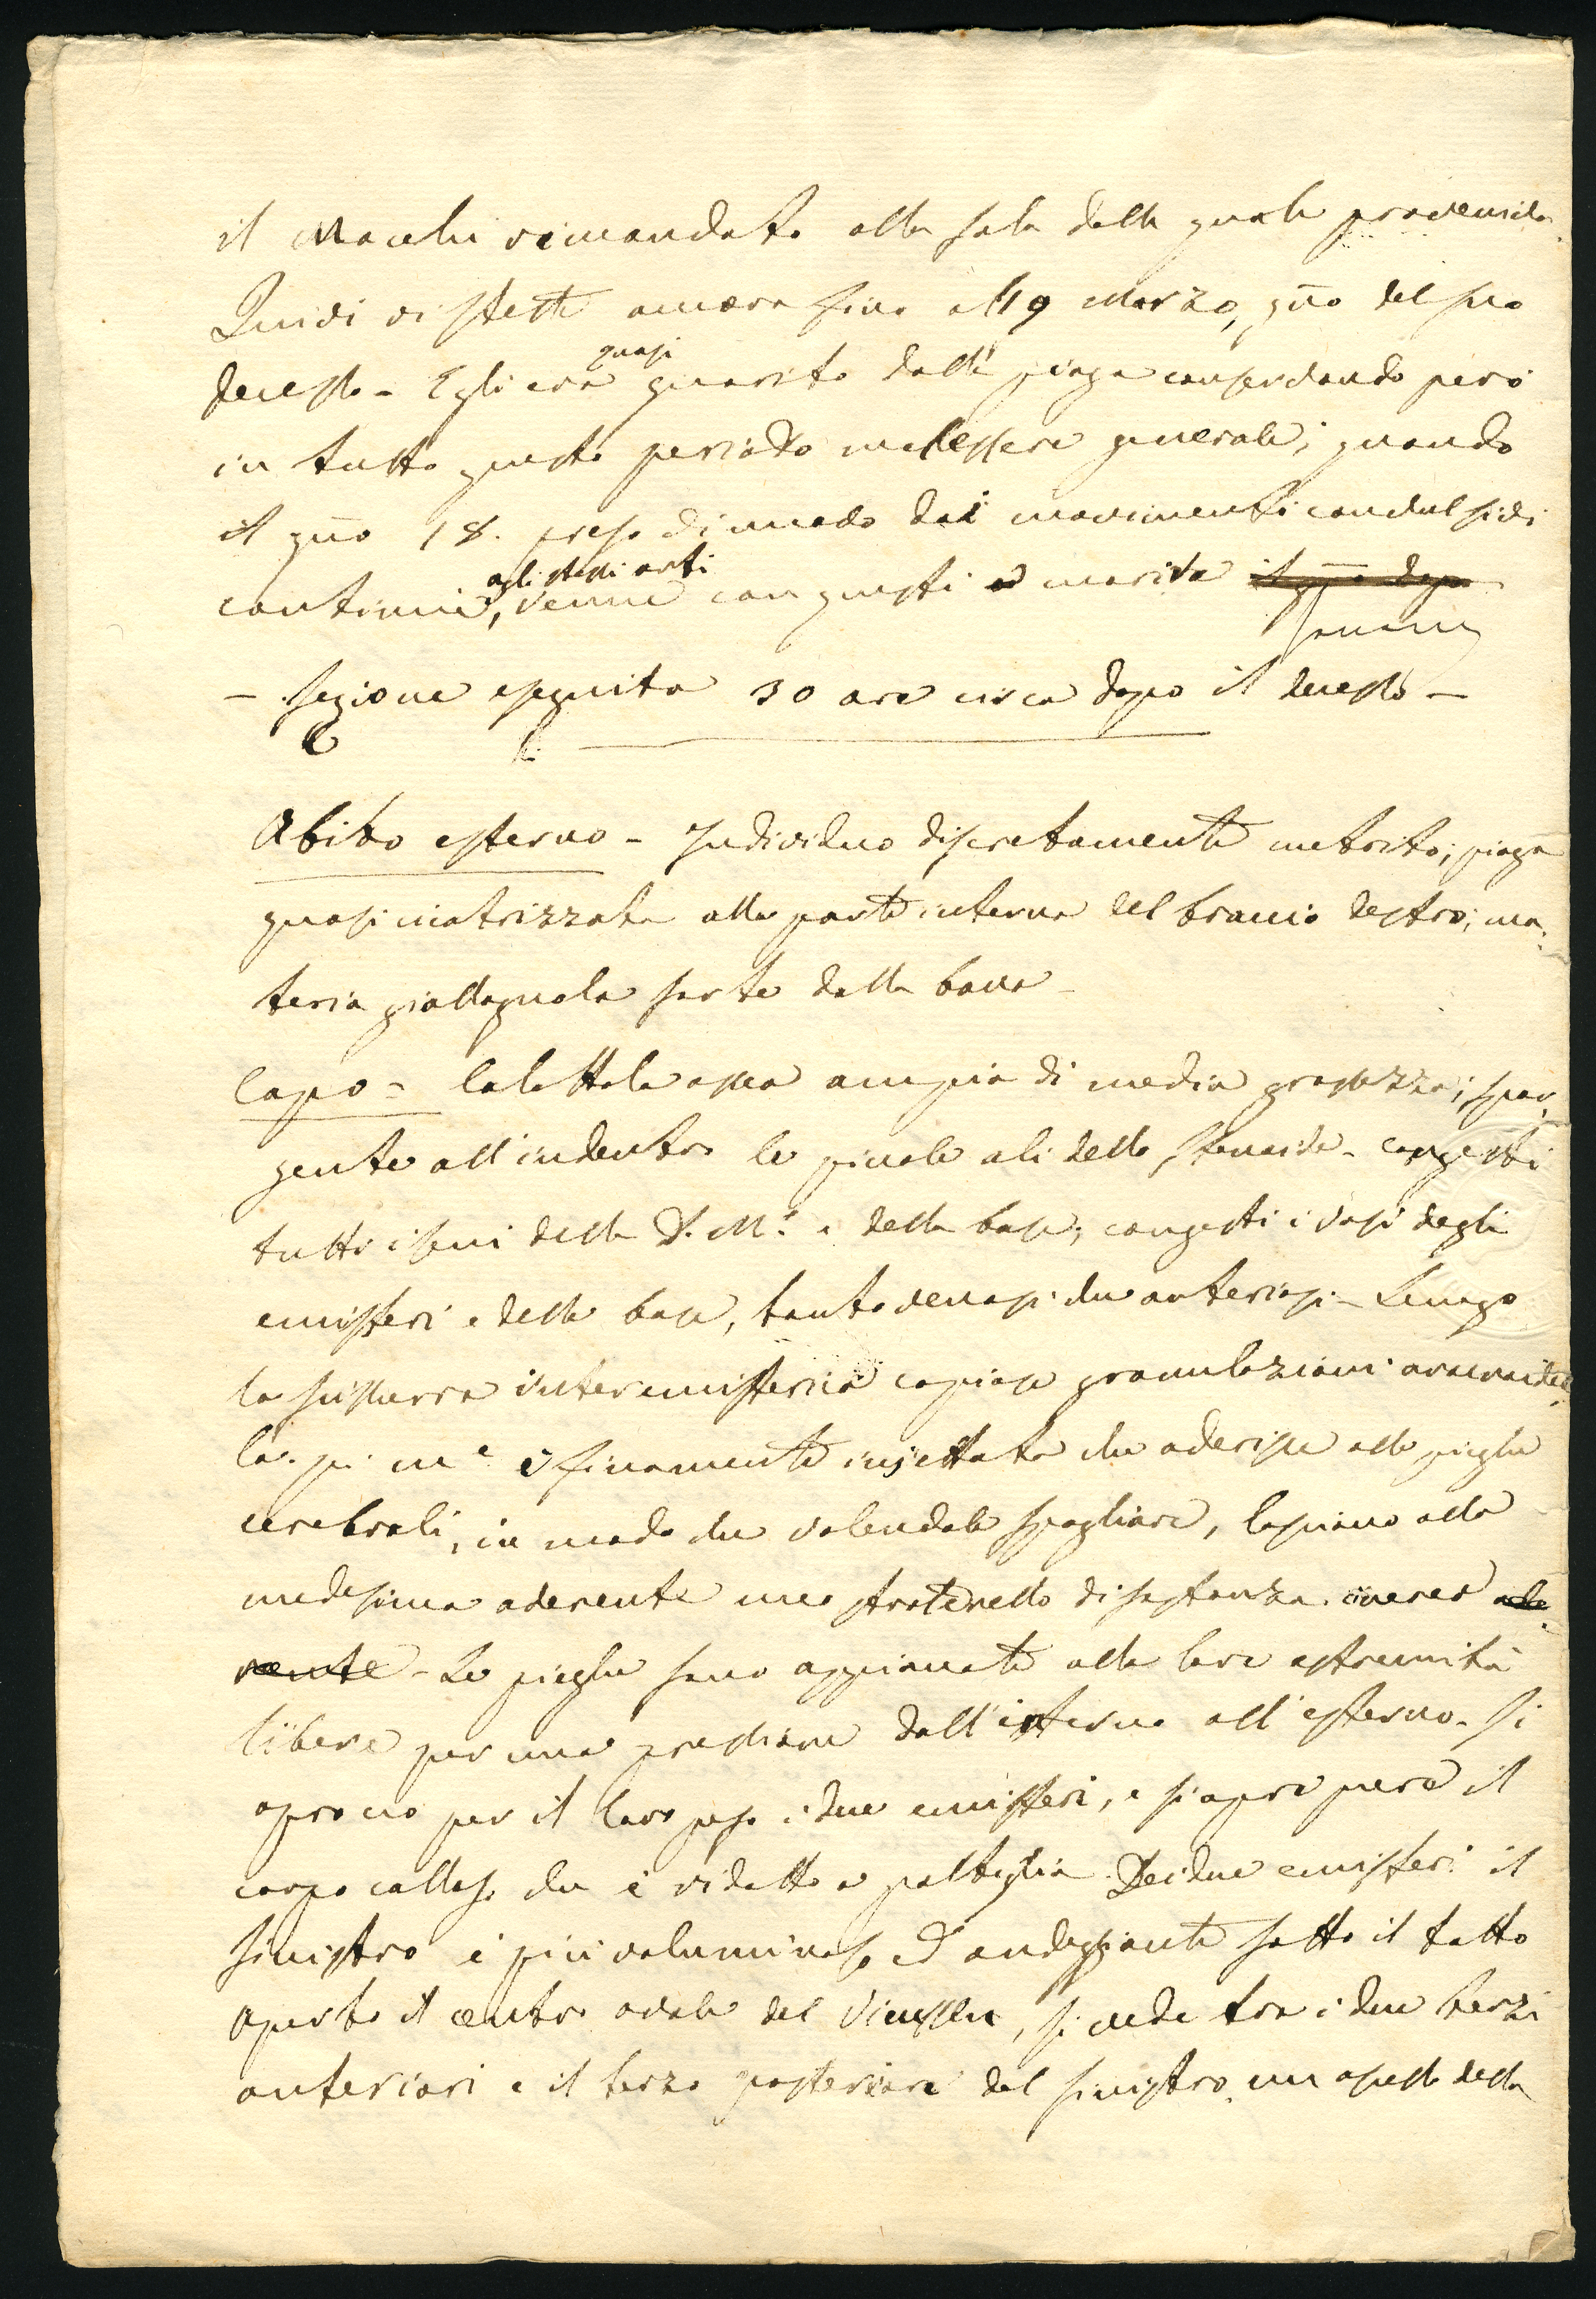 il Macchi rimandato alla sala dalla quale proveniva.
Quivi vi stette ancora fino all 19 Marzo, gño del suo
decesso - Egli era quasi guarito dalla piaga conservando però
in tutto questo periodo malessere generale; quando
il gño 18. preso di nuovo dai movimenti convulsivi
continui, agli stessi arti venne con questi a morire il gño dopo
- Sezione eseguita 30 ore circa dopo il decesso -
Abito esterno - Individuo discretamente nutrito; piaga
quasi cicatrizzata alla parte interna del braccio destro; ma-
teria giallagnola sorte dalla bocca -
Capo - La scattola ossea ampia di media grossezza; spor-
gente all'indentro le piccole ali dello sfenoide - congesti
tutti i seni della D. M.e e della base; congesti i vasi degli
emisferi e della base, tanto venosi che arteriosi - Lungo
la scissura interemisferica copiose granulazioni aracnoidee
La pi. me è finamente injettata che aderisce alle pieghe
cerebrali, in modo che volendola spogliare, lasciano alla
medesima aderente uno straterello di sostanza cinerea ade-
rente - Le pieghe sono appianate alla loro estremità
libere per una pressione dall'interno all'esterno. Si
aprono per il loro peso i due emisferi, e si apre pure il
corpo calloso che è ridotto a poltiglia. Dei due emisferi il
sinistro è più voluminoso ed ondeggiante sotto il tatto
Aperto il centro ovale del Vieussen, si vede tra i due terzi
anteriori e il terzo posteriore del sinistro un ascesso della